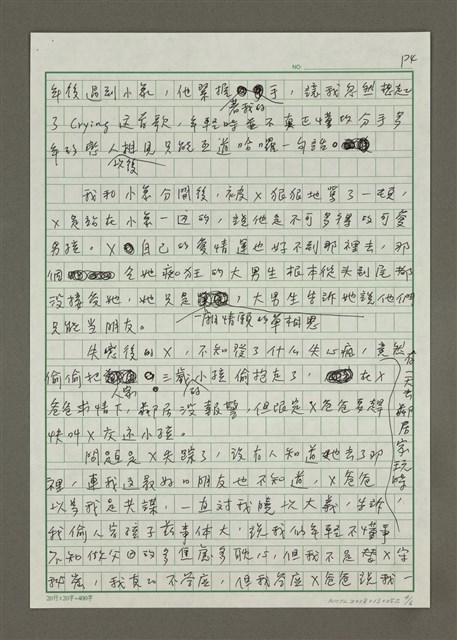 NO. P4
年後遇到小氣,他緊握著我的手,讓我忽然想起
了Crying這首歌,年輕時並不真正懂的分手多
年的戀人以後相見只能互道哈囉一句話。
我和小氣分開後,被X狠狠地罵了一頓,
X是站在小氣一邊的,說他是不可多得的可愛
男孩。X自己的愛情運也好不到那裡去,那
個令她痴狂的大男生根本從头到尾都
沒接受她,她只是一廂情願的單相思,大男生告訴她說他們
只能当朋友。
失戀後的X,不知發了什么失心瘋,竟然有一天去鄰居家玩時
偷偷把人家的三歲小孩偷抱走了,在X
爸爸求情下,鄰居沒報警,但限定X爸爸要趕
快叫X交还小孩。
問題是X失踪了,沒有人知道她去了那
裡,連我這最好的朋友也不知道,X爸爸
以為我是共謀,一直对我曉以大義,告訴
我偷人家孩子茲事体大,說我们年輕不懂事
不知做父母的多焦慮多耽心,但我不是替X守
秘密,我真的不答应,但我答应X爸爸說我一
20行×20字=400字